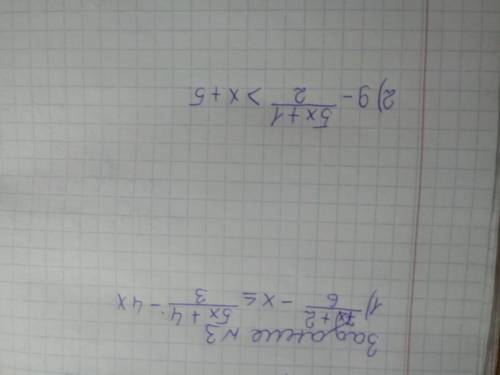 Задание №3
1) \frac{7x+2}{6} - x ≤ \frac{5x+4}{3} - 4x
2) 9 - \frac{5x+1}{2} > x+5